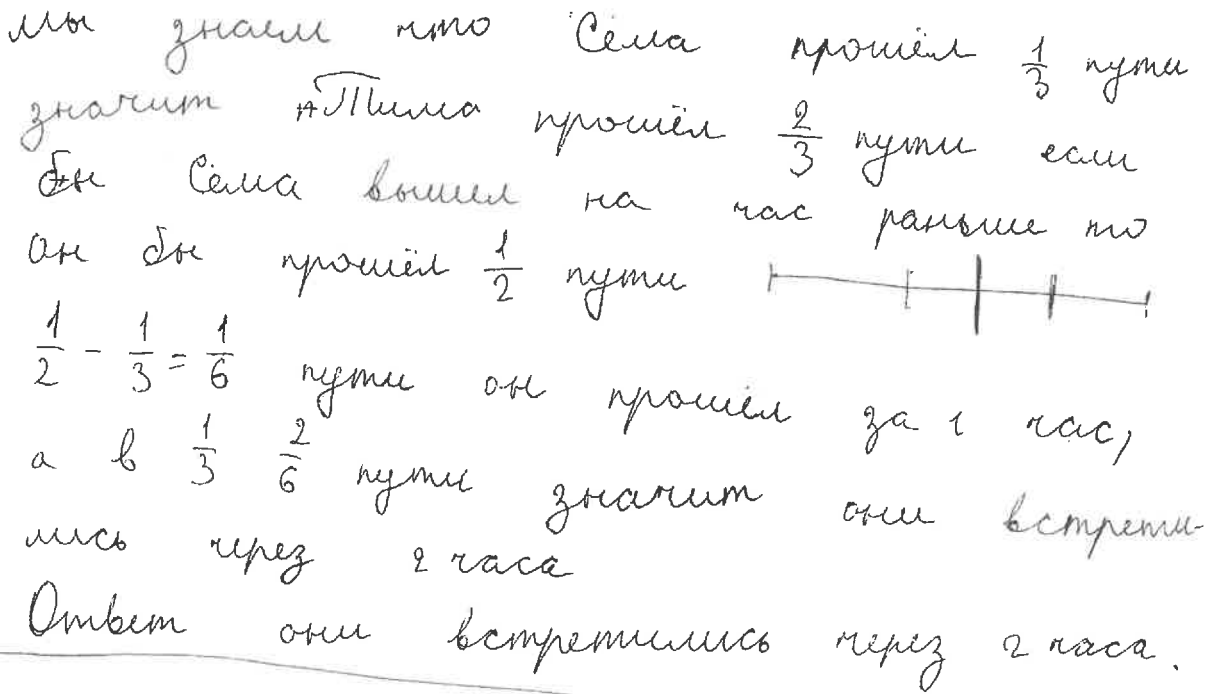 мы знаем что Сёма прошёл 1/3 пути
значит Тима прошёл 2/3 пути если
бы Сёма вышел на час раньше то
он бы прошёл 1/2 пути
1/2 - 1/3 = 1/6 пути он прошёл за 1 час,
а в 1/3 2/6 пути значит они встрети-
лись через 2 часа
Ответ они встретились через 2 часа.